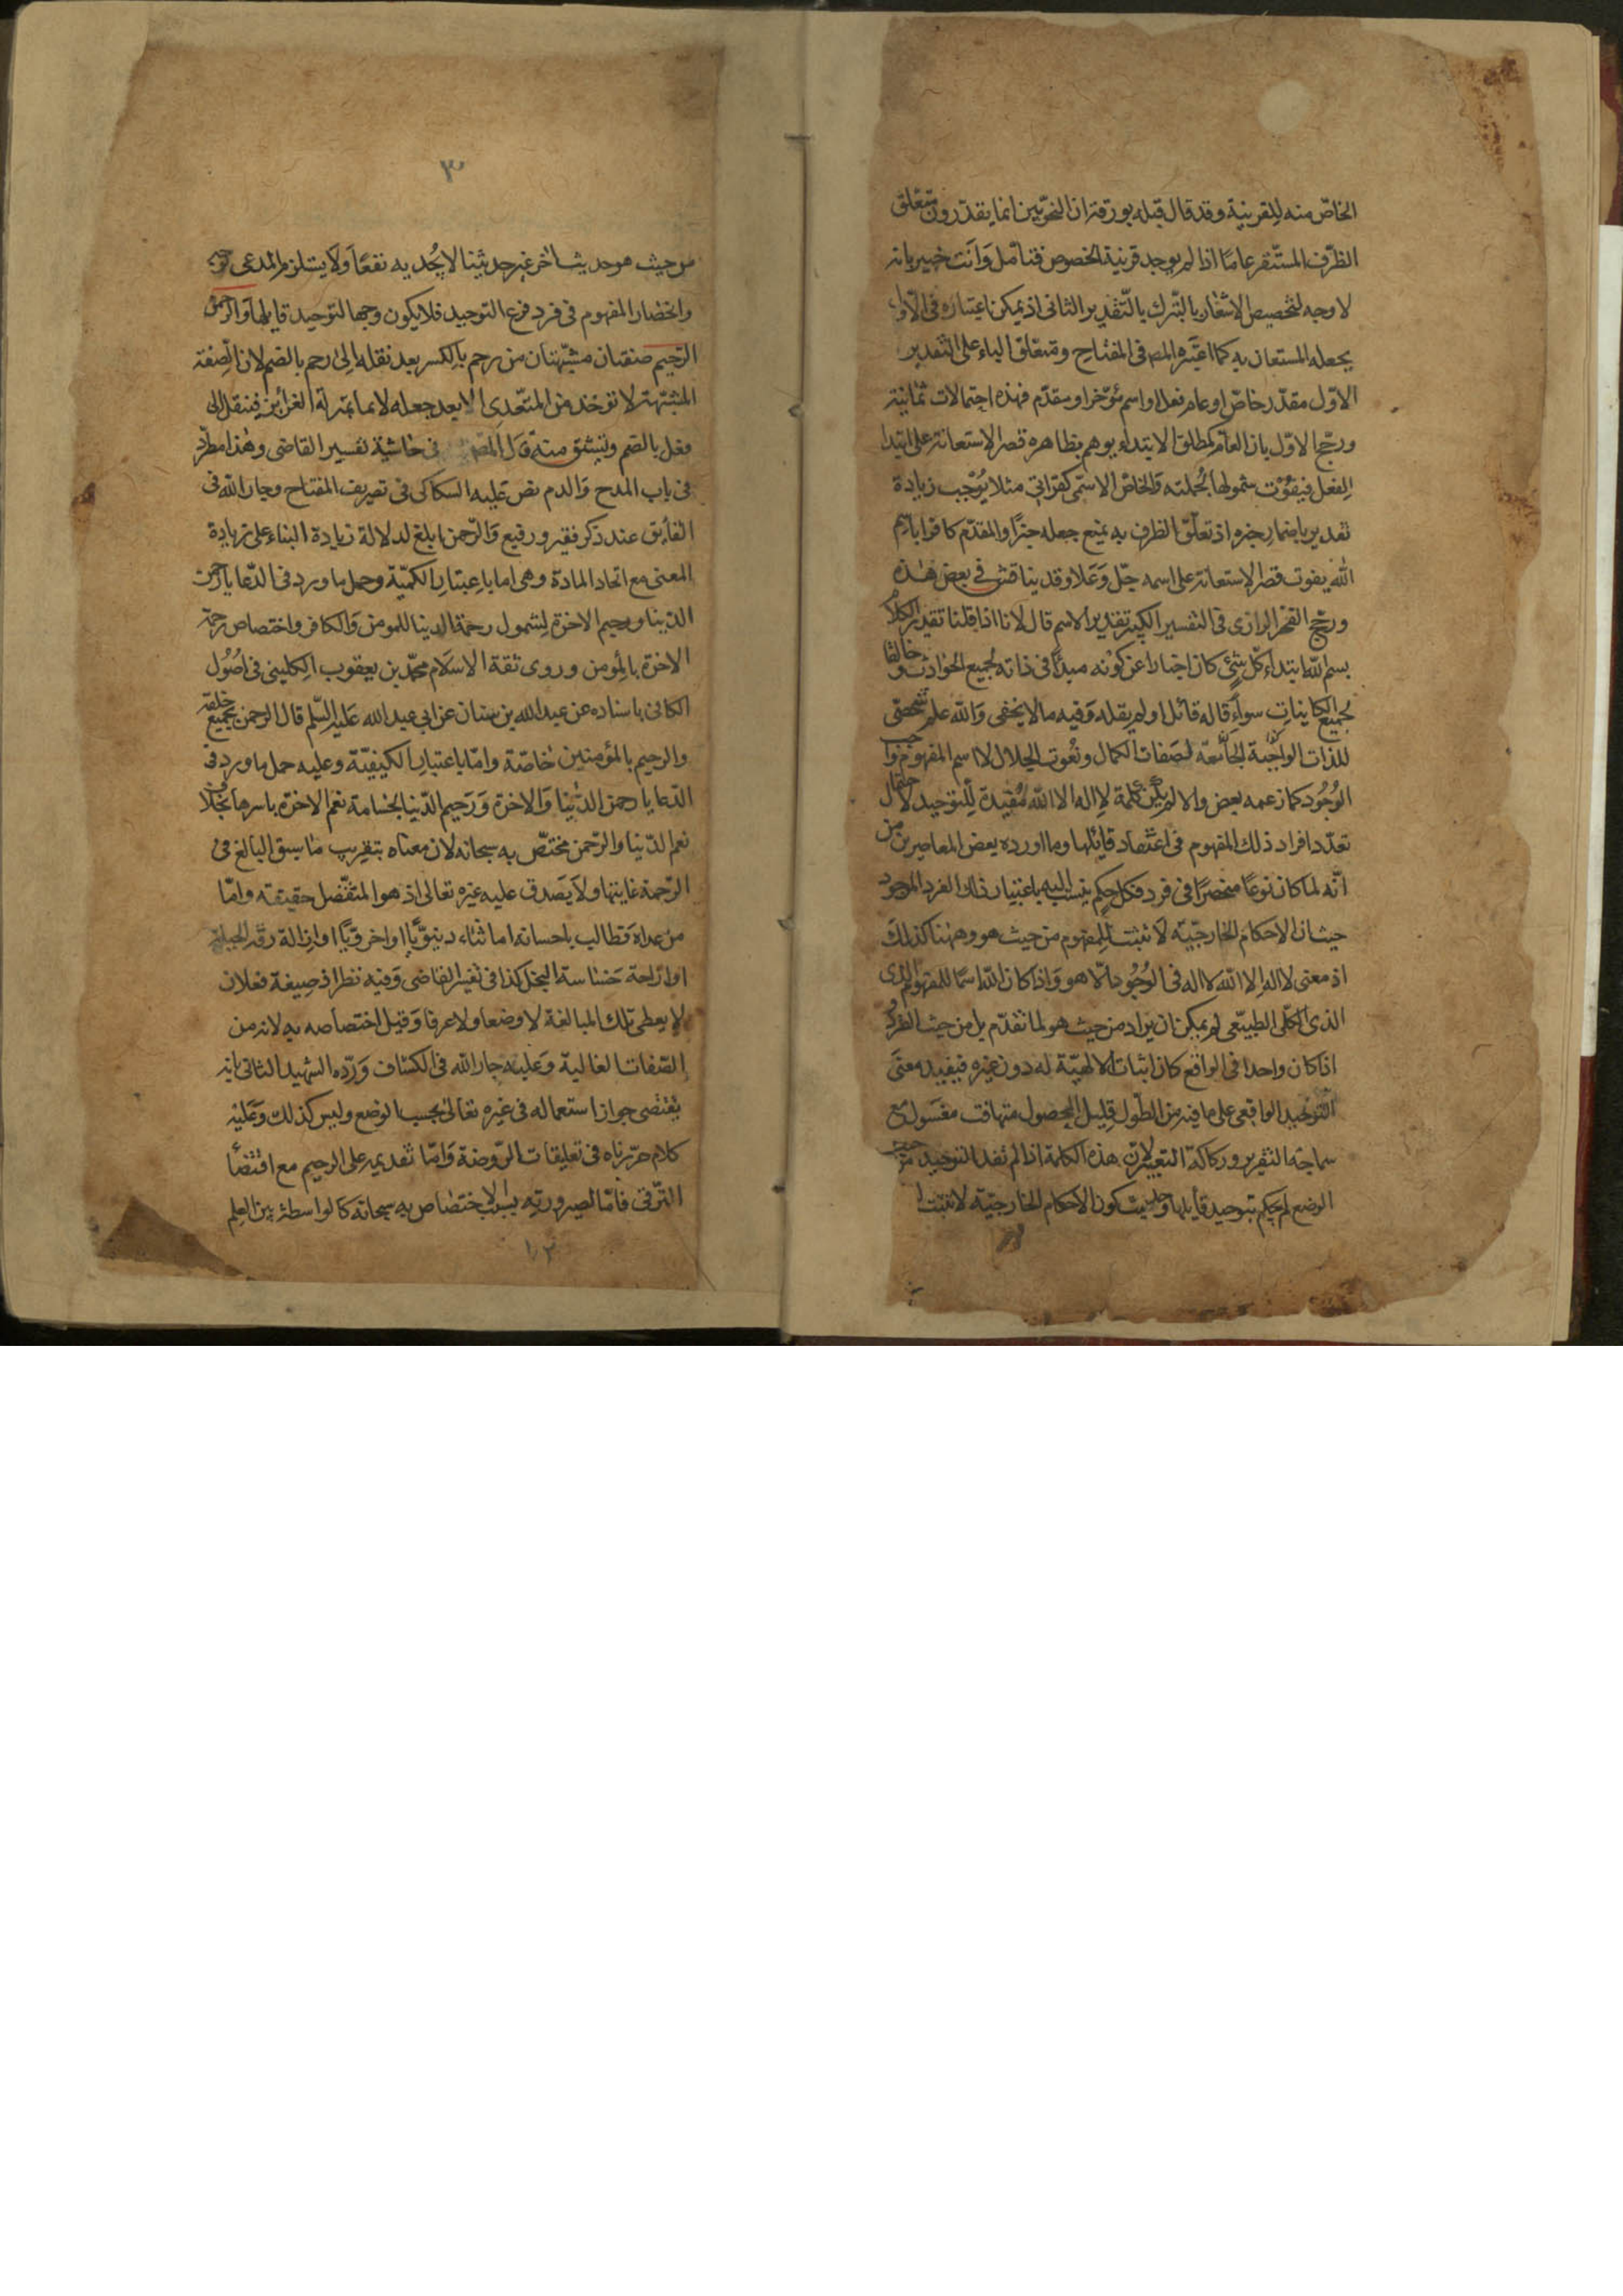 الخاصّ منه للقرينية وقد قال قبله بورقة ان النحويّين انما يقدّرون متعلق
الظرف المستقر عاما اذا لم يوجد قرنية الخصوص فتأمل وانت خبير بانه
لا وجه لتخصيص الاشعار بالتبرك بالتقدير الثانى اذ يمكن اعتباره فى الاول
بجعله المستعان به كما اعتبره المص فى المفتاح ومتعلق الباء على التقدير
الاوّل مقدّر خاصّ او عام فعل او اسم مؤخر او مقدّم فهذه احتمالات ثمانية
ورجّح الاوّل بان العام كمطلق الابتداء يوهم بظاهره قصر الاستعانة على ابتدا
الفعل فيفوت شمولها لجملته والخاص الاسمى كقراتى مثلا يوجب زيادة
تقدير باضمار خبره اذ تعلق الظرف به يمنع جعله خبرًا والمقدّم كاقرا باسم
الله يفوت قصر الاستعانة على اسمه جلّ وعلا وقد يناقش فى بعض هذه
ورجّح الفخر الرازى فى التفسير الكبير تقدير الاسم قال لانا اذا قلنا تقدير الكلام
بسم الله ابتداء كل شئ كان اخبارا عن كونه مبدأ فى ذاته لجميع الحوادث وخالقا
لجميع الكاينات سواء قاله قائل او لم يقله وفيه ما لا يخفى والله علم شخصى
للذات الواجبة الجامعة لصفات الكمال ونعوت الجلال لا اسم المفهوم واجب
الوجود كما زعمه بعض والا لم يكن كلمة لا اله الا الله مفيدة للتوحيد لاحتمال
تعدّد افراد ذلك المفهوم فى اعتقاد قايلها وما اورده بعض المعاصرين من
انّه لما كان نوعا منحصرًا فى فرد فكل حكم ينسب اليه باعتبار ذلك الفرد الموجود
حيث ان الاحكام الخارجيّة لا تثبت للمفهوم من حيث هو وههنا كذلك
اذ معنى لا اله الا الله لا اله فى الوجود الا هو واذا كان الله اسما للمفهوم
الذى الكلّى الطبيعى لم يمكن ان يراد من حيث هو لما تقدّم بل من حيث الفرد
اذا كان واحدا فى الواقع كان اثبات الالهيّة له دون غيره فيفيد معنى
التوحيد الواقعى على ما فيه من الطول قليل المحصول متهافت مغسول مع
سماجة التقرير وركاكة التعبير لان هذه الكلمة اذا لم تفد التوحيد من حيث
الوضع لم يحكم بتوحيد قايلها وحديث كون الاحكام الخارجيّة لا تثبت
٣
من حيث هو حديث اخر غير حديثنا لا يجديه نفعًا ولا يستلزم المدعى
وانحصار المفهوم فى فرد فرع التوحيد فلا يكون وجها لتوحيد قايلها والرحمن
الرّحيم صفتان مشبّهتان من رحم بالكسر بعد نقله الى رحم بالضم لان الصفة
المشبّهة لا تؤخذ من المتعدى الا بعد جعله لازما بمنزلة الغرائز فينقل الى
فعل بالضم ويشتق منه قال المص فى حاشية تفسير القاضى وهذا مطرّد
فى باب المدح والذم نص عليه السكاكى فى تصريف المفتاح وجار الله فى
الفايق عند ذكر فقير ورفيع والرّحمن ابلغ لدلالة زيادة البناء على زيادة
المعنى مع اتحاد المادة وهى اما باعتبار الكميّة وحمل ما ورد فى الدّعا يا رحمن
الدّينا ورحيم الاخرة لشمول رحمة الدينا للمومن والكافر واختصاص رحمة
الاخرة بالمومن وروى ثقة الاسلام محمّد بن يعقوب الكلينى فى اصول
الكافى باسناده عن عبد الله بن سنان عن ابى عبد الله عليه السّلم قال الرحمن بجميع خلقه
والرحيم بالمؤمنين خاصّة وامّا باعتبار الكيفيّة وعليه حمل ما ورد فى
الدّعا يا رحمن الدّنيا والاخرة ورحيم الدّنيا لجسامة نعم الاخرة باسرها بخلاف
نعم الدّنيا والرّحمن مختصّ به سبحانه لان معناه بتقريب ما سبق البالغ فى
الرّحمة غايتها ولا يصدق عليه غيره تعالى اذ هو المتفضل حقيقة وامّا
من عداه فطالب باحسانه اما ثناء دنيوّيا او اخرويّا او ازالة رقة الجنسية
او ازاحة خساسة البخل كذا فى تفسير القاضى وفيه نظر اذ صيغة فعلان
لا يعطى تلك المبالغة لا وضعا ولا عرفا وقيل اختصاصه به لانه من
الصّفات الغالبة وعليه جار الله فى الكشاف ورّده الشهيد الثانى بانه
يقتضى جواز استعماله فى غيره تعالى بحسب الوضع وليس كذلك وعليه
كلام حررناه فى تعليقات الرّوضة وامّا تقديمه على الرحيم مع اقتضأ
الترّقى فامّا لصيرورته بسبب الاختصاص به سبحانه كالواسطة بين العلم
١٢